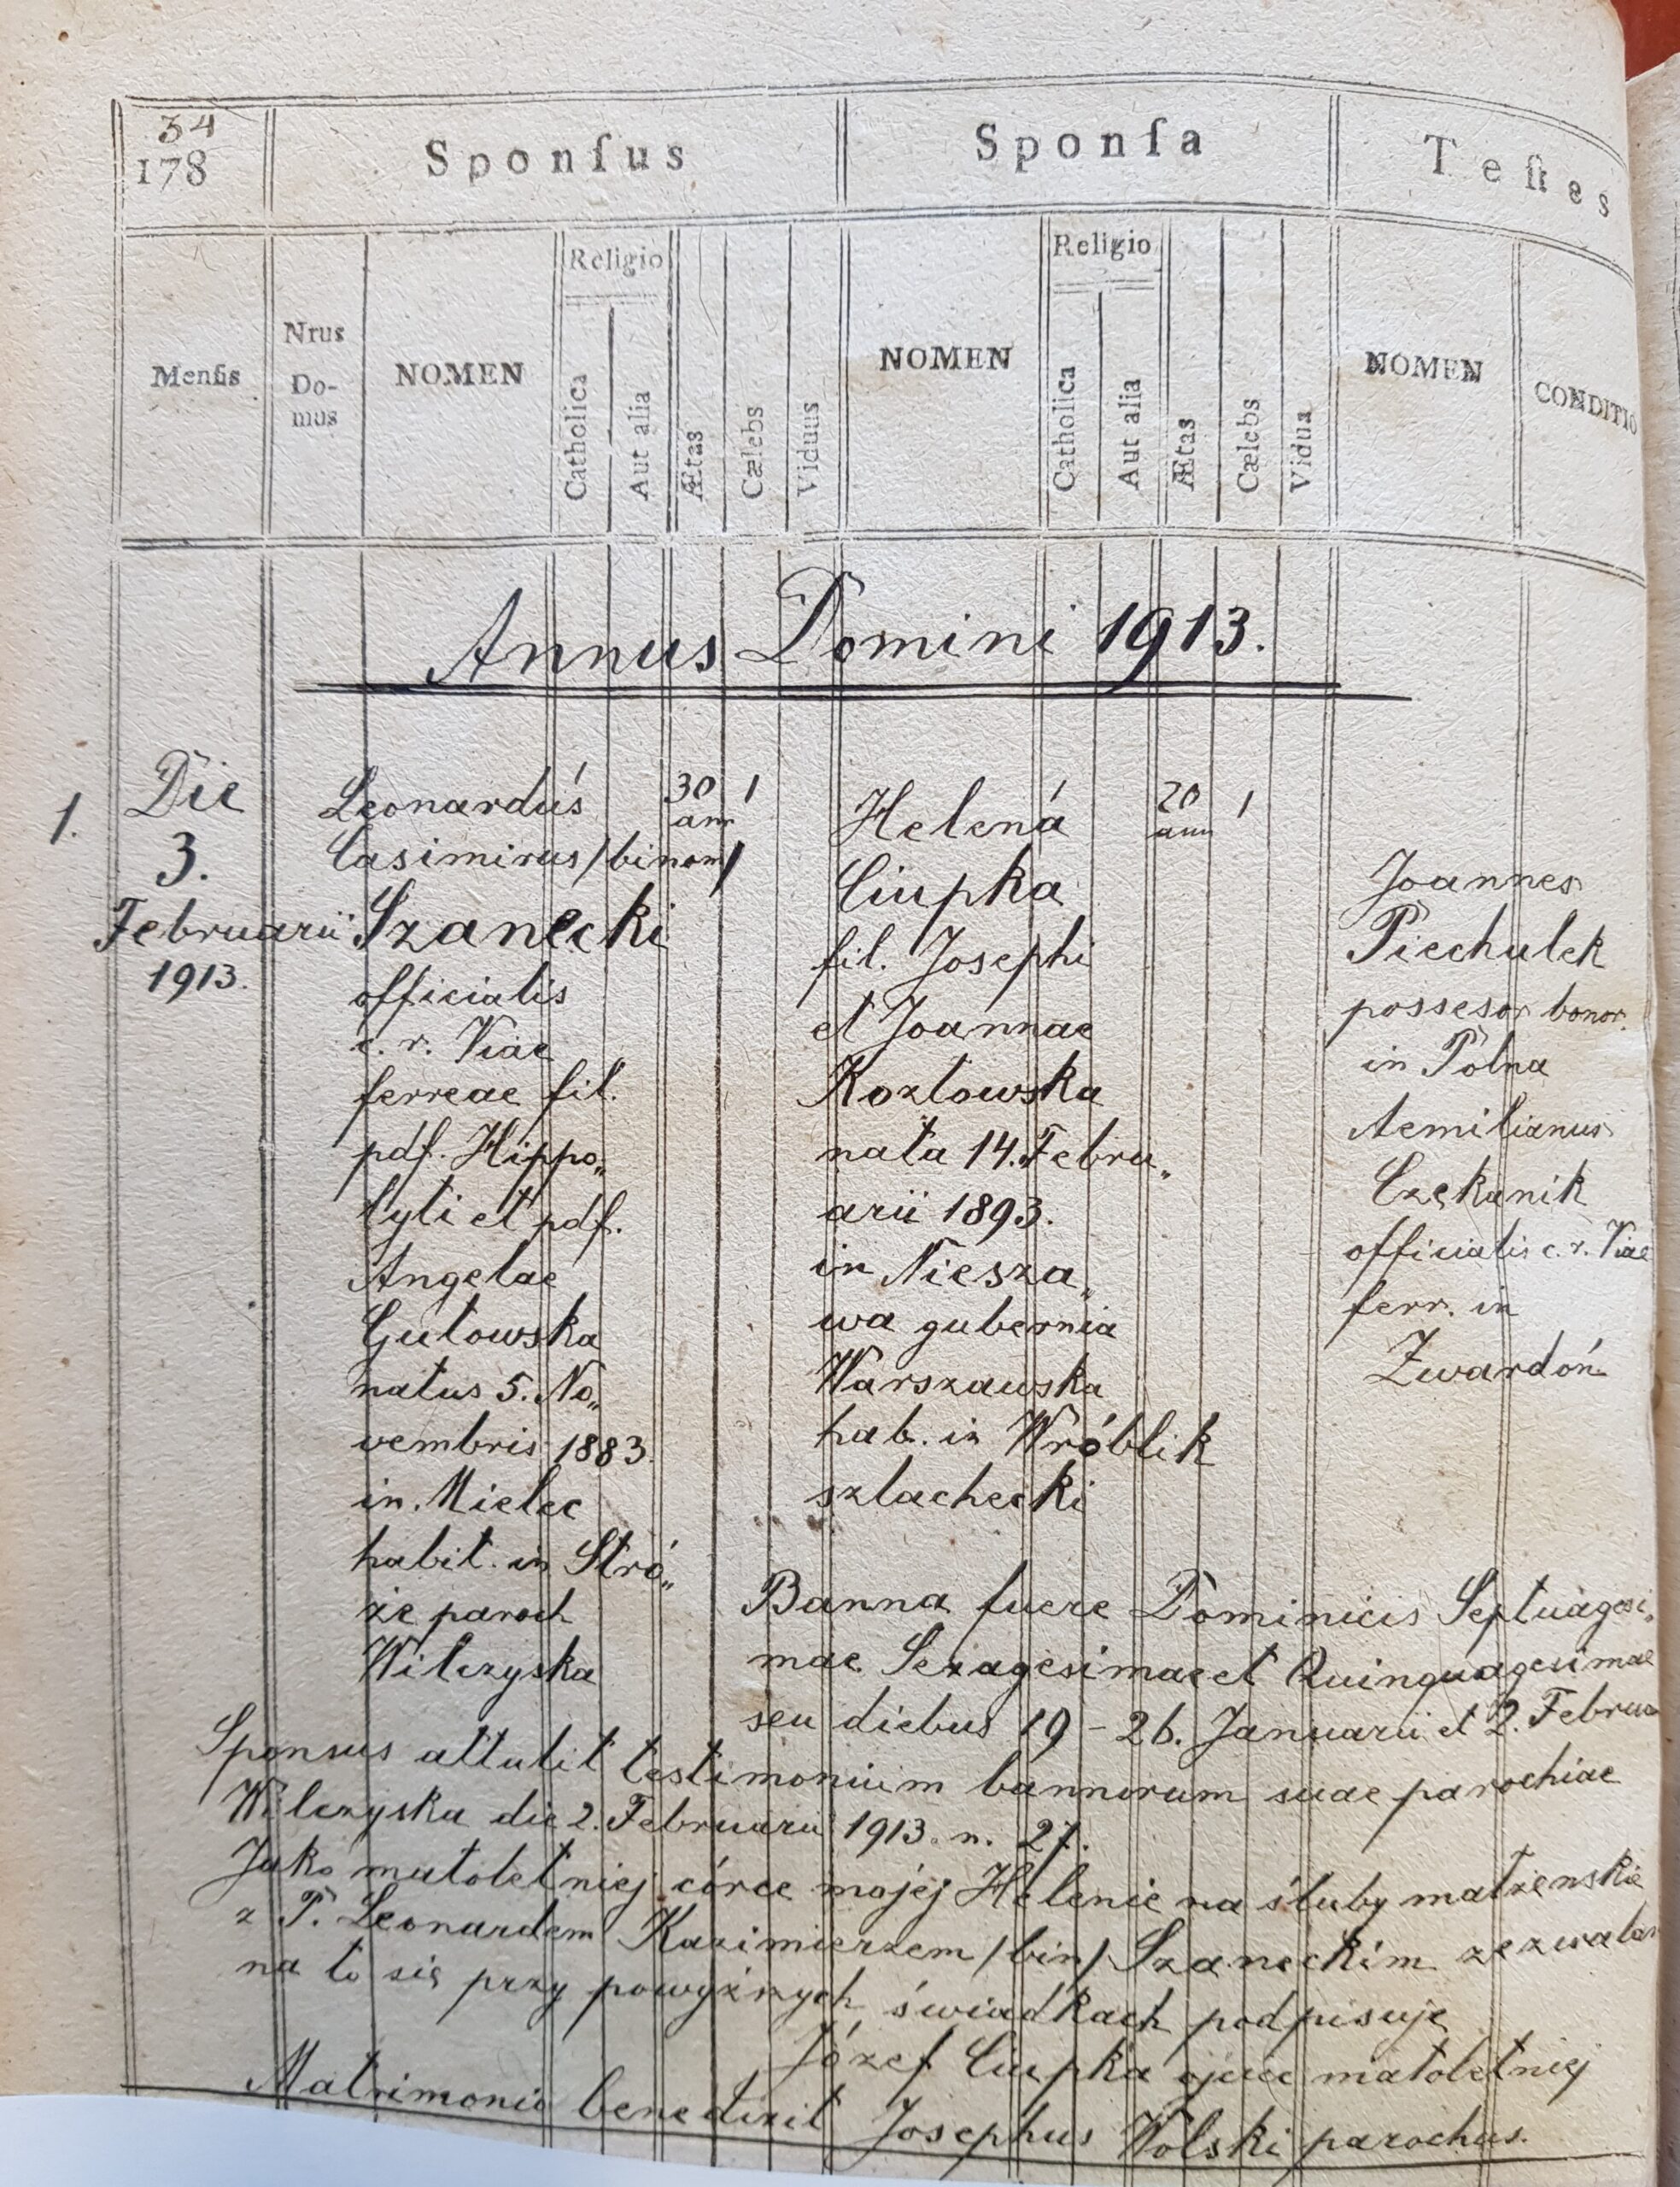 34
178
Sponſus
Sponſa
Teſtes
Menſis
Nrus Do-mus
NOMEN
Religio
Catholica
Aut alia
Ætas
Cælebs
Viduus
NOMEN
Religio
Catholica
Aut alia
Ætas
Cælebs
Vidua
NOMEN
CONDITIO
Annus Domini 1913.
1.
Die
3.
Februarii
1913.
Leonardus
Casimirus /binom/
Szanecki
officialis
c. r. Viae
ferreae fil.
pdf. Hippo„
lyti et pdf.
Angelae
Gutowska
natus 5. No„
vembris 1883.
in Mielec
habit. in Stró„
że paroch
Wilczyska
30
ann
1
Helena
Ciupka
fil. Josephi
et Joannae
Kozłowska
nata 14. Febru„
arii 1893.
in Niesza„
wa gubernia
Warszawska
hab. in Wróblik
szlachecki
20
ann
1
Joannes
Piechulek
possesor bonor.
in Polna
Aemilianus
Czekanik
officialis c. r. Viae
ferr. in
Zwardoń
Banna fuere Dominicis Septuagesi„
mae Sexagesimae et Quinquagesimae
seu diebus 19 - 26. Januarii et 2. Februa
Sponsus attulit testimonium bannorum suae parochiae
Wilczyska die 2. Februarii 1913. n. 27.
Jako małoletniej córce mojej Helenie na śluby małżenskie
z P. Leonardem Kazimierzem /bin/ Szaneckim zezwalam
na to się przy powyższych świadkach podpisuję
Józef Ciupka ojciec małoletniej
Matrimonio benedixit Josephus Wolski parochus.